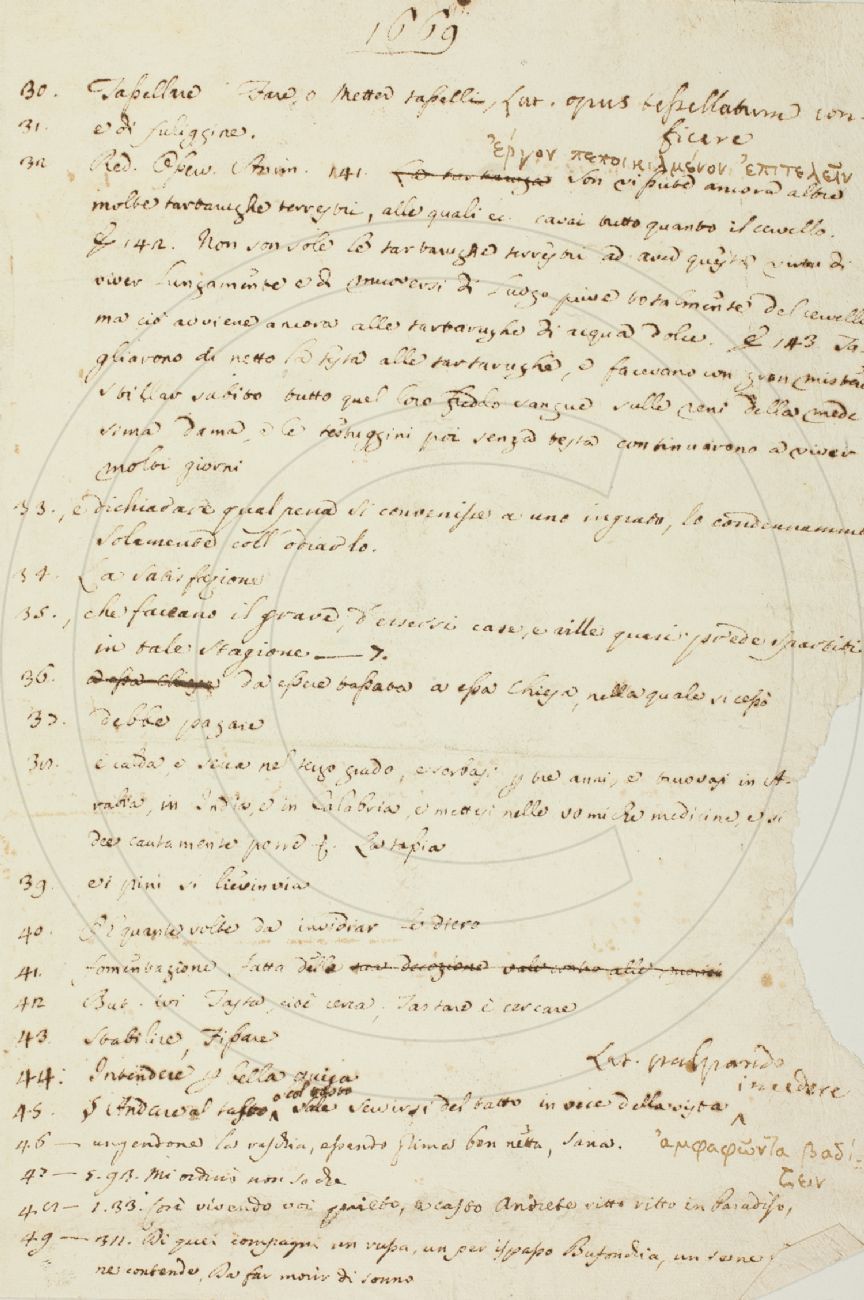 1669
30. Tassellare Fare, o Metter tasselli, Lat. opus tessellatum con-
ficere
31. e di fuliggine.
ἔργον πεποικιλμένον ἐπιτελεῖν
32 Red. Osserv. Anim. 141. Le tartarughe Son vissute ancora altre
molte tartarughe terrestri, alle quali ec. cavai tutto quanto il cervello.
E 142. Non son sole le tartarughe terrestri ad aver questa virtù di
viver lungamente e di muoversi di luogo prive totalmente del cervello
ma ciò avviene ancora alle tartarughe di acqua dolce. E 143. Ta-
gliarono di netto la testa alle tartarughe, e facevano con gran misterio
stillar subito tutto quel loro freddo sangue sulle reni della mede
sima Dama, e le testuggini poi senza testa continuarono a viver
molti giorni
33., e dichiarare qual pena si convenisse a uno ingrato, lo condennammo
solamente coll' odiarlo.
34. La satisfazione
35., che faceano il grave, d'essersi case, e ville quasi prede spartiti
in tale stagione —— 7.
36. ad essa Chiesa da essere tassata a essa Chiesa, nella quale si cessò
37. debbe pagare
38. è calda, e secca nel terzo grado, e serbasi p tre anni, e truovasi in A-
rabia, in India, e in Calabria, e mettesi nelle vomiche medicine, e si
dee cautamente porre &. La tapsia
39. e i pini si lievin via
40. quante volte da invidiar le diero
41. fomentazione fatta della sua decozione vale contro alli morsi
42 But. ivi Tasta, cioè cerca, Tastare è cercare
43. Stabilire, Fissare
44. Intendere p bella
Lat. palpando
incedere
col tasto
45. § Andare al tasto, vale Servirsi del tatto in vece della vista
46 — ungendone la raschia, essendo prima ben netta, sana.
ἀμφαφῶντα βαδί-
ζειν
47 — 5. 93. Mi ordinò non so che
48 — 1. 33. sarè vivendo voi quieto, e casto Andrete ritto ritto in Paradiso,
49 — 311. Di quei compagni un russa, un per ispasso Bufonchia, un serme
ne contende, Da far morir di sonno